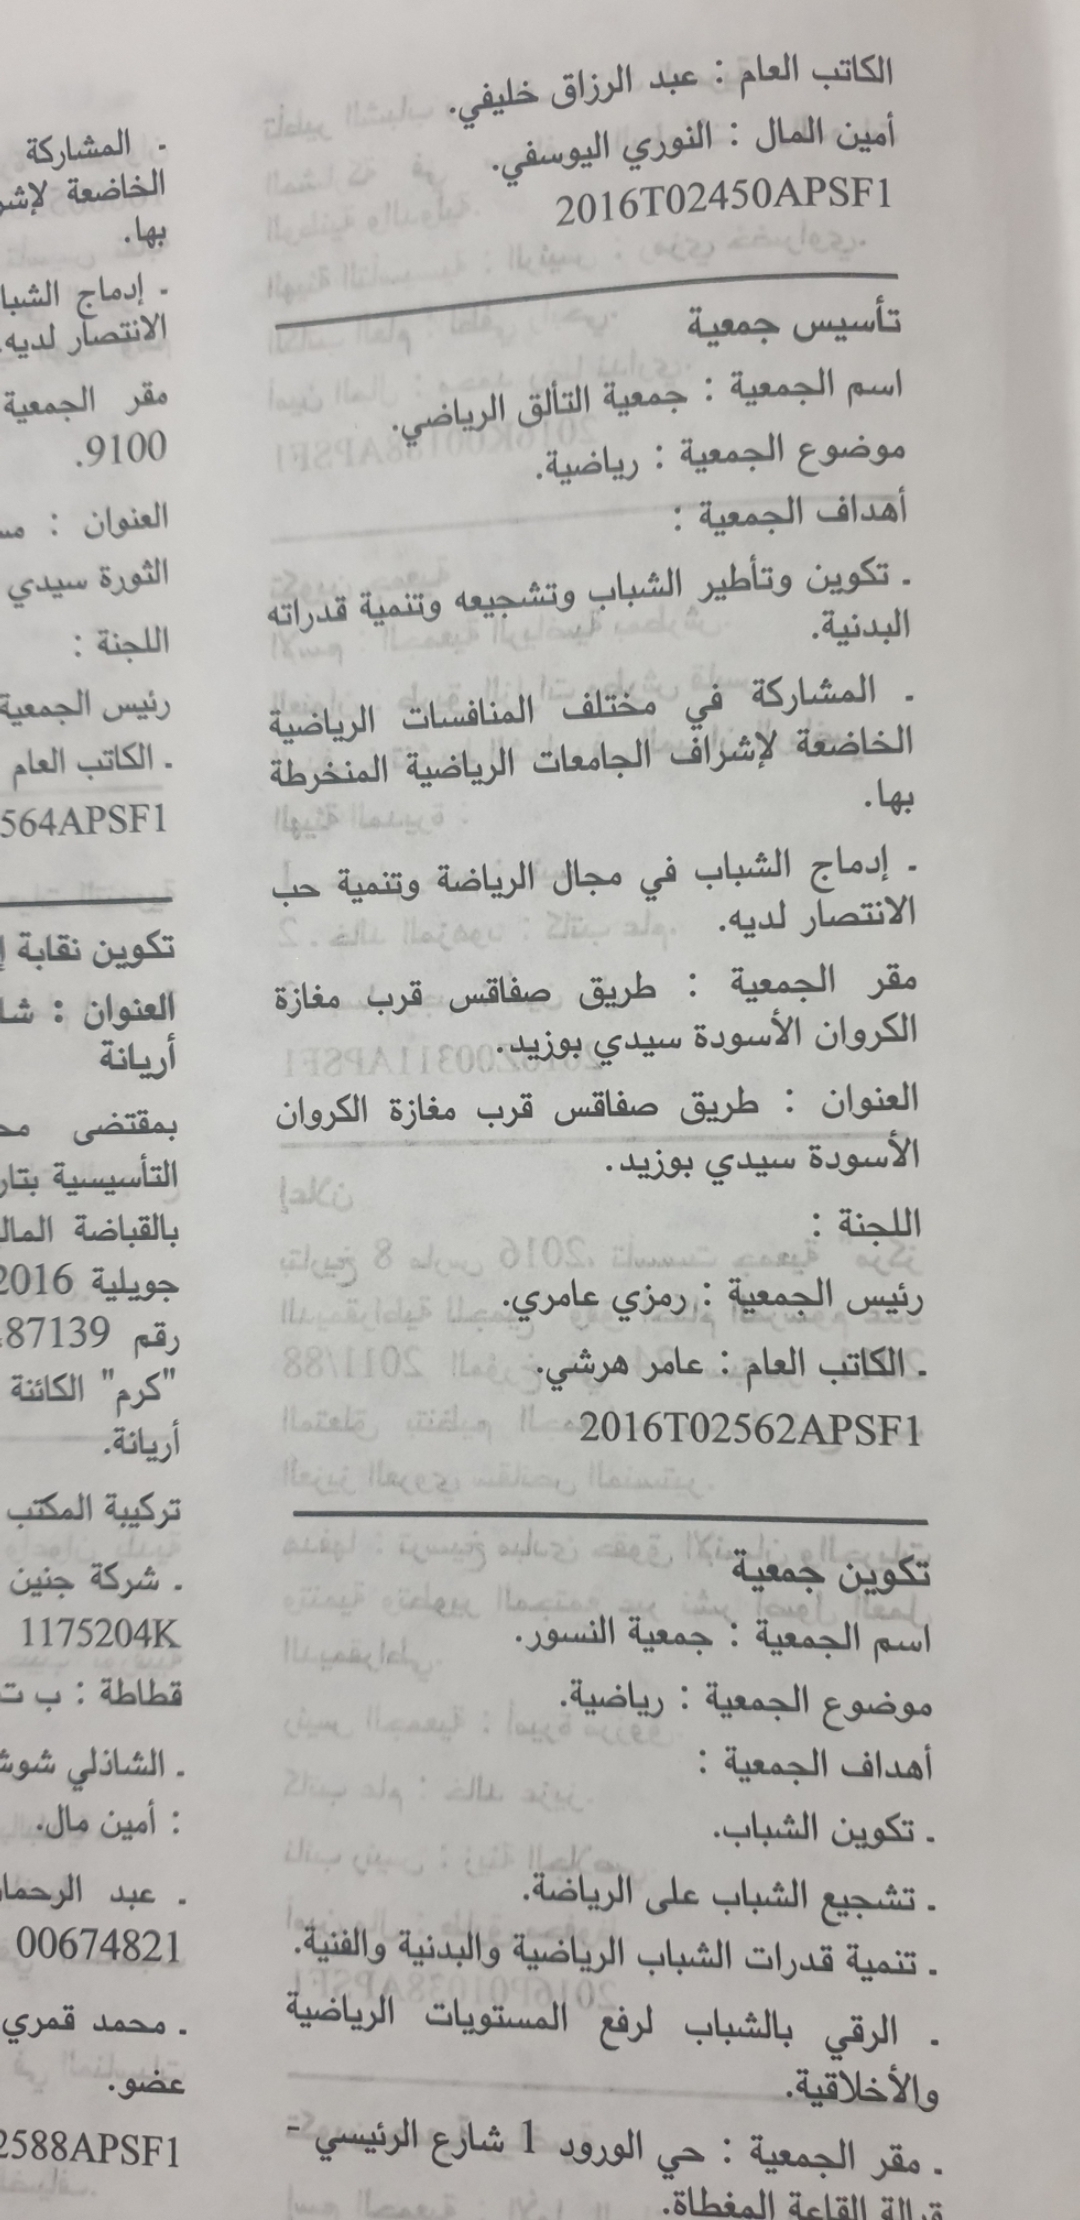 الكاتب العام : عبد الرزاق خليفي.
أمين المال : النوري اليوسفي.
2016T02450APSF1
تأسيس جمعية
اسم الجمعية : جمعية التألق الرياضي.
موضوع الجمعية : رياضية.
أهداف الجمعية :
. تكوين وتأطير الشباب وتشجيعه وتنمية قدراته
البدنية.
. المشاركة في مختلف المنافسات الرياضية
الخاضعة لإشراف الجامعات الرياضية المنخرطة
بها.
. إدماج الشباب في مجال الرياضة وتنمية حب
الانتصار لديه.
مقر الجمعية : طريق صفاقس قرب مغازة
الكروان الأسودة سيدي بوزيد.
العنوان : طريق صفاقس قرب مغازة الكروان
الأسودة سيدي بوزيد.
اللجنة :
رئيس الجمعية : رمزي عامري.
. الكاتب العام : عامر هرشي.
2016T02562APSF1
تكوين جمعية
اسم الجمعية : جمعية النسور.
موضوع الجمعية : رياضية.
أهداف الجمعية :
. تكوين الشباب.
. تشجيع الشباب على الرياضة.
. تنمية قدرات الشباب الرياضية والبدنية والفنية.
. الرقي بالشباب لرفع المستويات الرياضية
والأخلاقية.
. مقر الجمعية : حي الورود 1 شارع الرئيسي -
قبالة القاعة المغطاة.
. المشاركة
الخاضعة
بها.
. إدماج
الانتصار لديه.
مقر الجمعية
9100.
العنوان :
الثورة سيدي
اللجنة :
رئيس الجمعية
. الكاتب العام
564APSF1
تكوين نقابة
العنوان :
أريانة
بمقتضى
التأسيسية
بالقباضة
جويلية 2016
رقم 87139
"كرم" الكائنة
أريانة.
تركيبة المكتب
. شركة جنين
1175204K
قطاطة : ب ت
. الشاذلي
: أمين مال.
. عبد
00674821
. محمد قمري
عضو.
2588APSF1